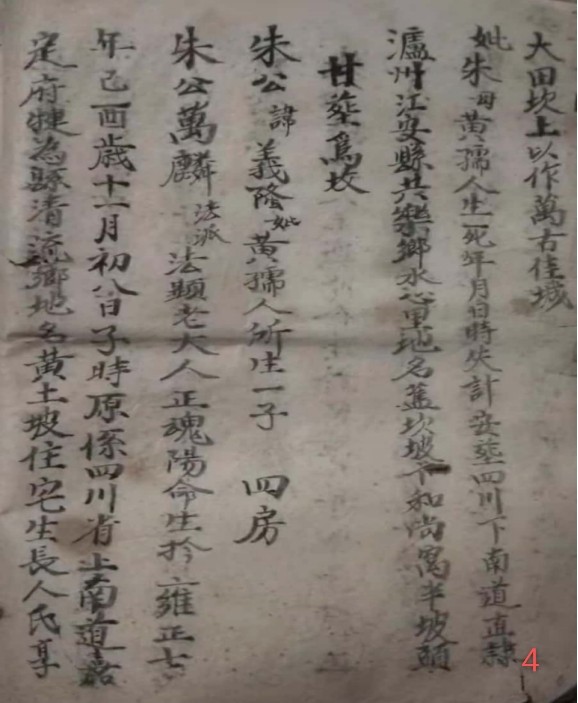 大田坎上以作萬古佳城
妣朱母黃孺人生死年月日時失計安塟四川下南道直隸
瀘州江安縣共樂鄉水心里地名蓋坎坡下和尚窩半坡頭
甘塟爲坟
朱公諱義隆妣黃孺人所生一子 四房
朱公萬麟法派法顯老大人正魂陽命生扵雍正七
年己酉歲十一月初八日子時原係四川省上南道嘉
定府犍為縣清流鄉地名黃土坡住宅生長人氏享
4